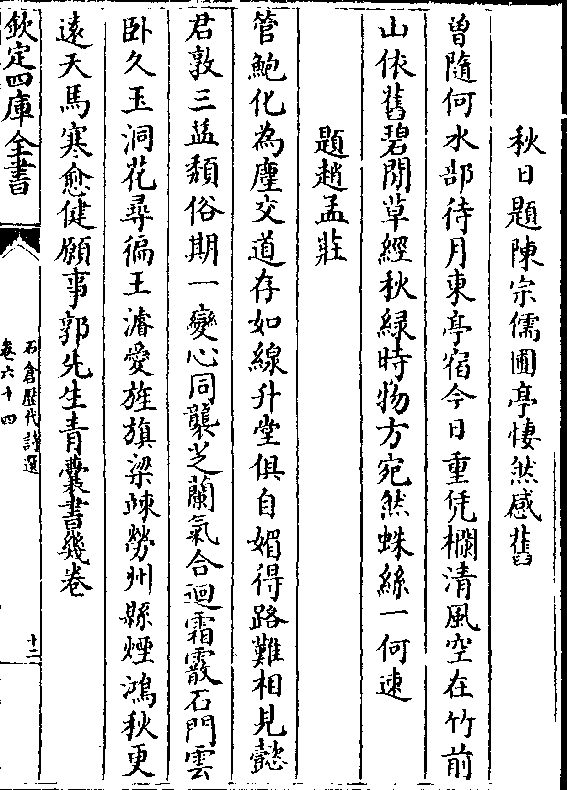 秋日題陳宗儒圃亭悽然感舊
曽隨何水部待月東亭宿今日重凭欄清風空在竹前
山依舊碧閒草經秋緑時物方宛然蛛絲一何速
題趙孟莊
管鮑化為塵交道存如線升堂俱自媚得路難相見懿
君敦三益頽俗期一變心同襲芝蘭氣合迴霜霰石門雲
卧久玉洞花尋徧王濬愛旌旗梁竦勞州縣煙鴻秋更
逺天馬寒愈健願事郭先生青囊書幾卷
欽定四庫全書
石倉歷代詩選
卷六十四
十二